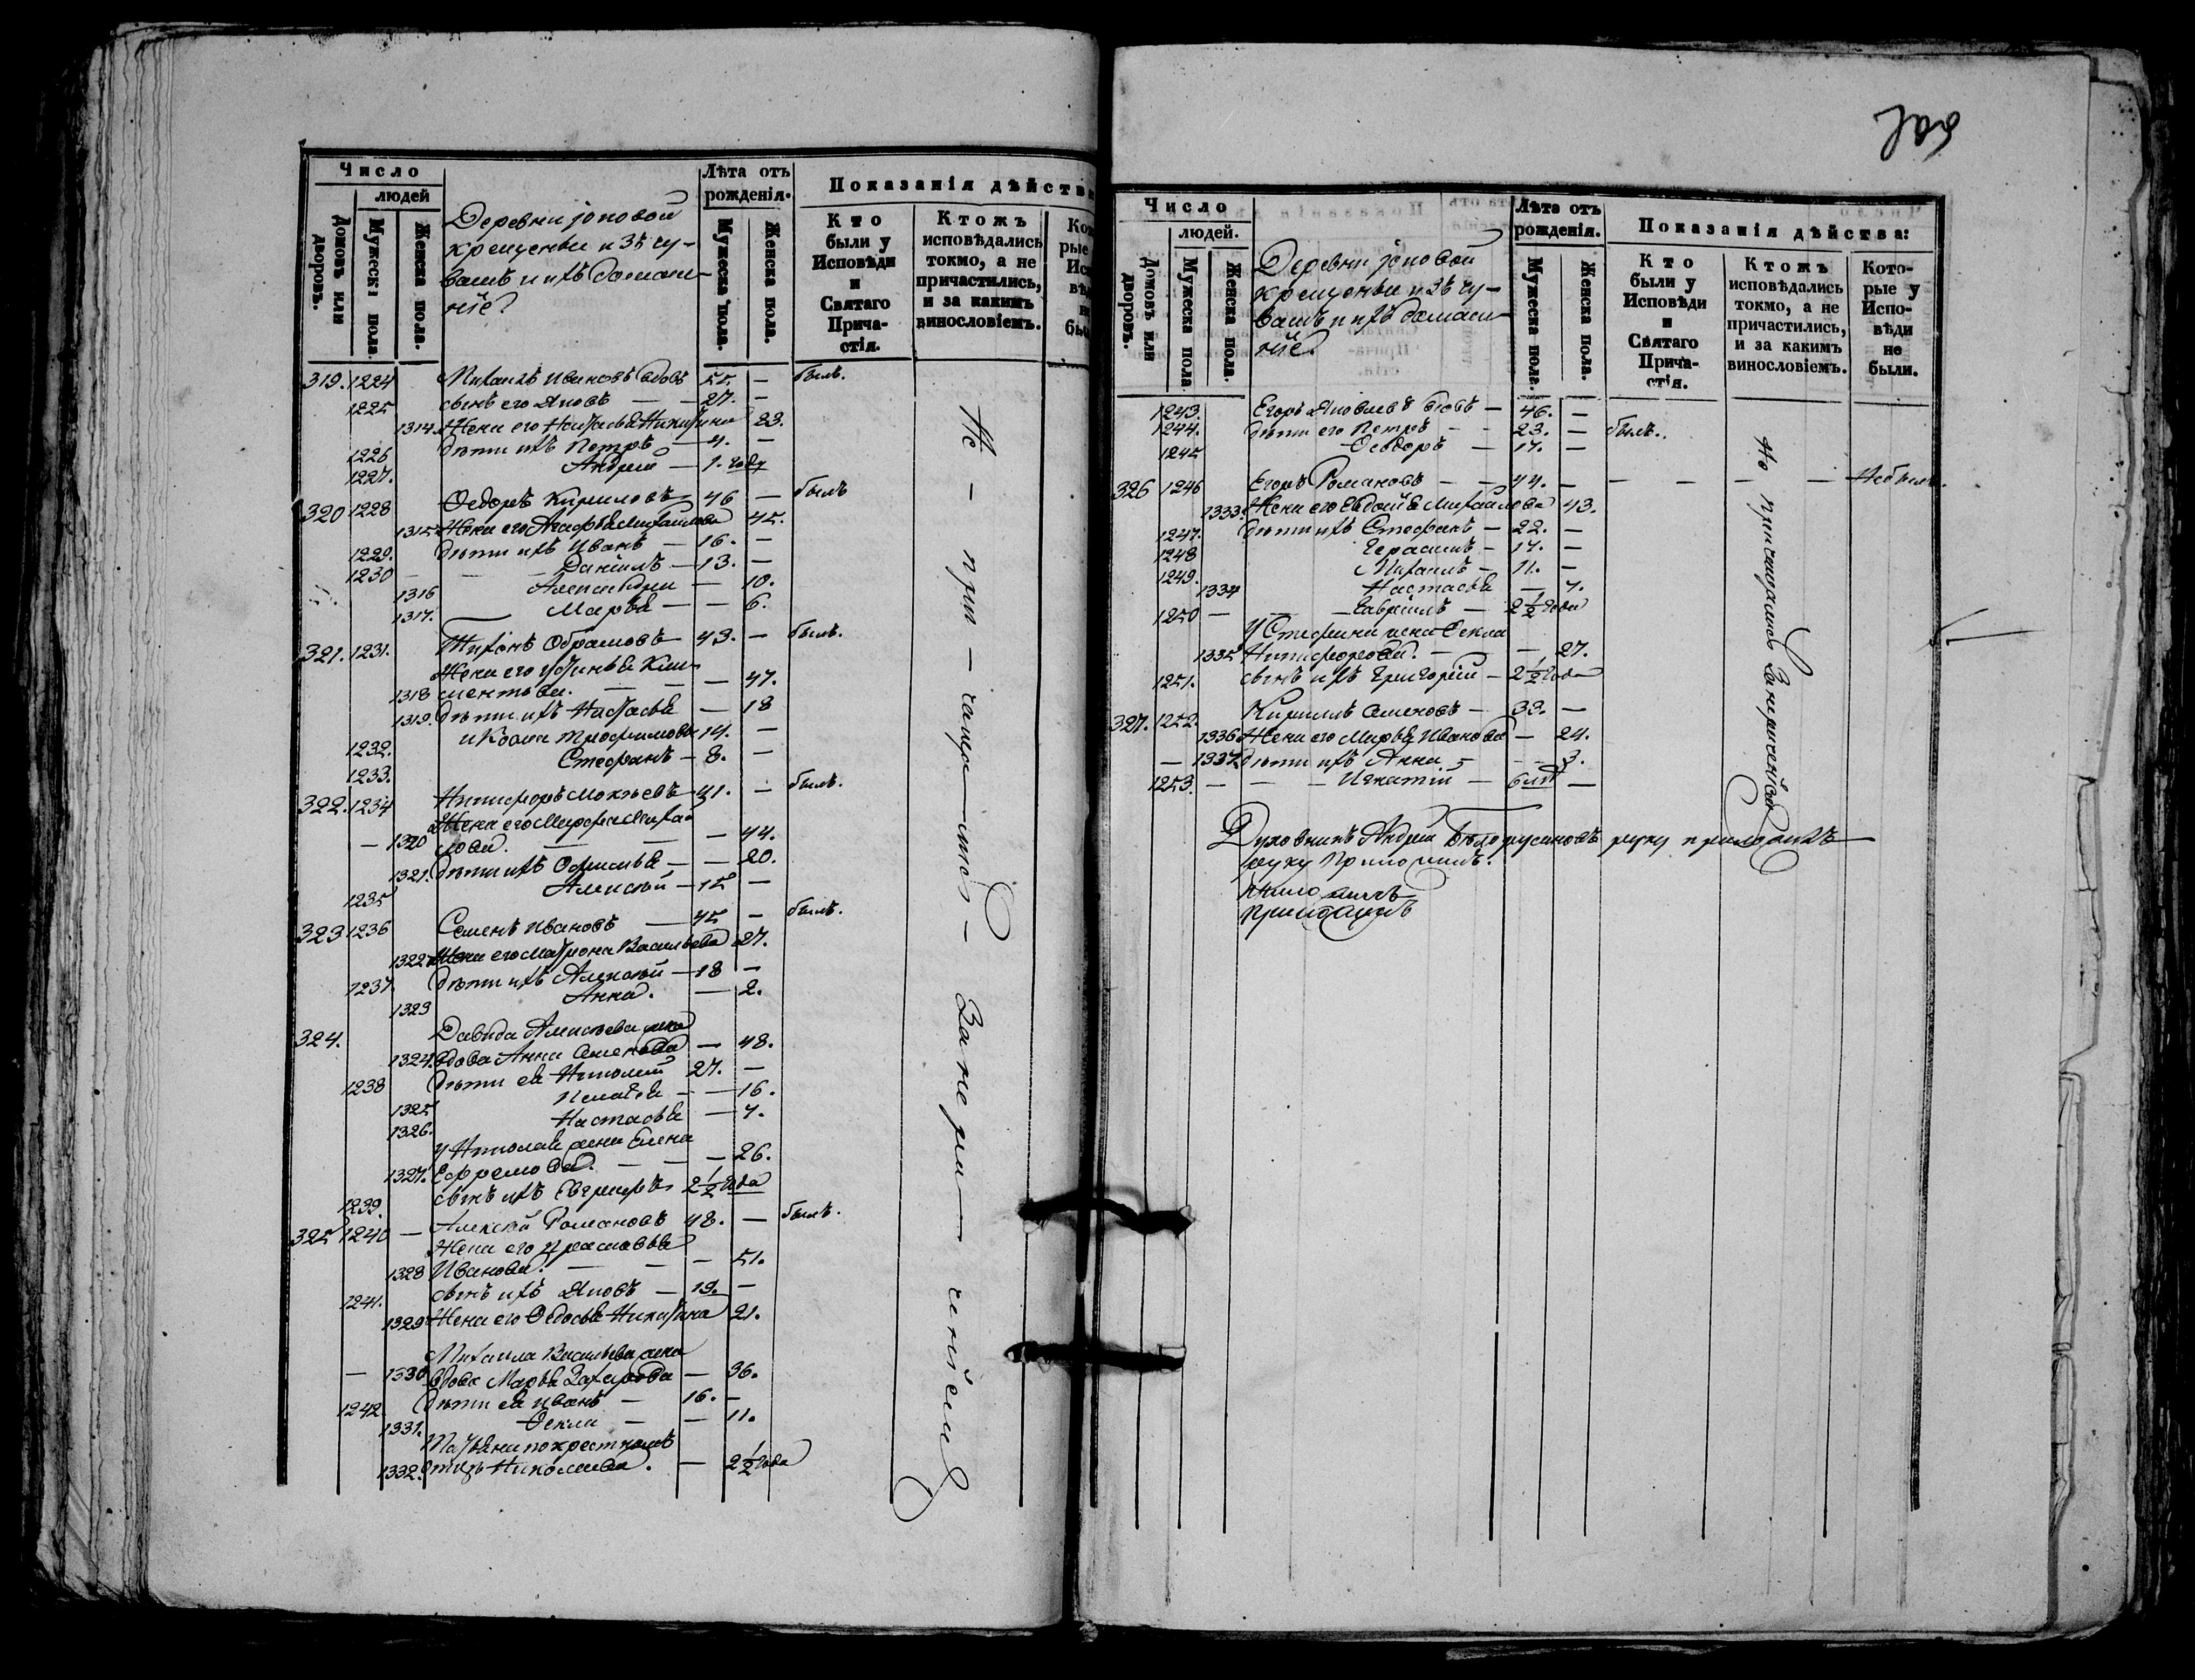 Число
людей
Домовъ или дворовъ.
Мужеска пола.
Женска пола.
Деревни
крещеныи изъ чу-
вашъ и ихъ домаш-
ніе
Лѣта отъ
рожденія.
Мужеска пола.
Женска пола.
Показанія дѣйства
Кто
были у
Исповѣди
и
Святаго
Прича-
стія.
Ктожъ
исповѣдались
токмо, а не
причастились,
и за какимъ
винословіемъ.
319. 1224 Михаилъ Ивановъ вдовъ 55. — былъ.
1225 сынъ его Яковъ — 27. —
1314. Жена его Настасья Никитина 23.
1226 дѣти ихъ Петръ — 4. —
1227. Андрей — 1. году
320 1228 Федоръ Кириловъ 46 — былъ
1315 Жена его Агафья Михайлова 45.
1229. дѣти ихъ Иванъ — 16. —
1230 — Даніилъ — 13. —
1316 Александра — 10.
1317. Марья — — 6.
321. 1231. Тихонъ Обрамовъ 43. — былъ.
Жена его Устинья Кли-
1318 ментьева. — — 47.
1319. дѣти ихъ Настасья — 18
1232. и Козма Трофимовы 14. —
1233. Стефанъ — 8. —
322. 1234 Никифоръ Мокѣевъ 41. — былъ.
Жена его Марфа Миха-
— 1320 лова. — — 44.
1321. дѣти ихъ Офимья — — 20.
1235 Алексѣй — 15 —
323 1236 Семенъ Ивановъ — 45 — былъ.
1322 Жена его Матрона Васильева 27.
1237. дѣти ихъ Алексѣй — 18 —
1323 Анна. — 2.
324. Давида Алексѣева жена
1324. вдова Анна Семенова — 48.
1238 дѣти ея Николай 27. —
1325 Пелагея — — 16.
1326. Настасья — 7.
У Николая жена Елена
1327. Ефремова. — — 26.
1239. сынъ ихъ Евграфъ 2½ года
325 1240 — Алексѣй Романовъ 48. — былъ.
Жена его Прасковья
1328 Иванова. — — 51.
1241. сынъ ихъ Яковъ — 19. —
1329 Жена его Федосья Никитина 21.
Михаила Васильева жена
— 1330 вдова Марья Захарова — 36.
1242 дѣти ея Иванъ — 16. —
1331. Фекла — — 11.
Татьяна по крестномъ
1332. отцѣ Николаева. — 2½ года
Не — при — чаща — лись — За не ра — ченіемъ
Число
людей.
Домовъ или дворовъ.
Мужеска пола
Женска пола.
Деревни
крещеныи изъ чу-
вашъ и ихъ домаш-
ніе.
Лѣта отъ
рожденія.
Мужеска пола.
Женска пола.
Показанія дѣйства:
Кто
были у
Исповѣди
и
Святаго
Прича-
стія.
Ктожъ
исповѣдались
токмо, а не
причастились,
и за какимъ
винословіемъ.
Кото-
рые у
Испо-
вѣди
не
были.
1243. Егоръ Яковлевъ вдовъ — 46. —
1244. дѣти его Петръ — — 23. — былъ.
1245 Феодоръ — 17. —
326 1246 Егоръ Романовъ — — 44. — — — — — Небылъ.
1333. Жена его Евдокья Михайлова 43.
1247. дѣти ихъ Стефанъ — 22. —
1248 Герасимъ — 17. —
1249. Михаилъ — 11. —
1334 Настасья — 7.
1250 — — Гавріилъ — 2½ года
У Стефана жена Фекла
1335 Никифорова. — — 27.
1251. сынъ ихъ Григорій — 2½ года
327. 1252. Кириллъ Семеновъ — 33. —
1336 Жена его Марья Иванова — 24.
— 1337. дѣти ихъ Анна — — 3.
1253. — — Игнатій — 6 —
Не причащались За нераченіемъ
Духовникъ Андрей Бѣлорусановъ руку приложилъ
руку приложилъ.